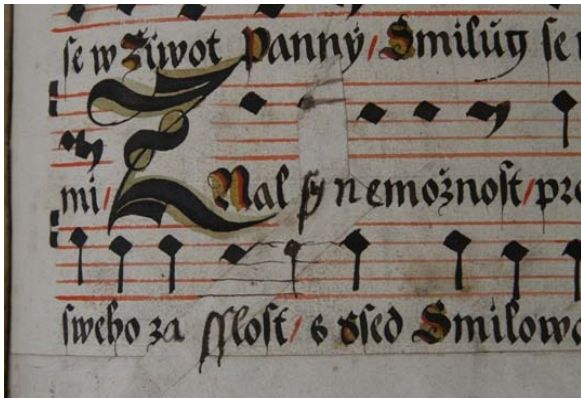 se w Žiwot Panny / Smilůg se
mi / ZNal sy nemožnost / pro
sweho za sslost / s gsed Smilowa